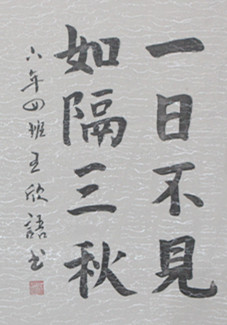 一日不見
如隔三秋
六年四班王欣語書